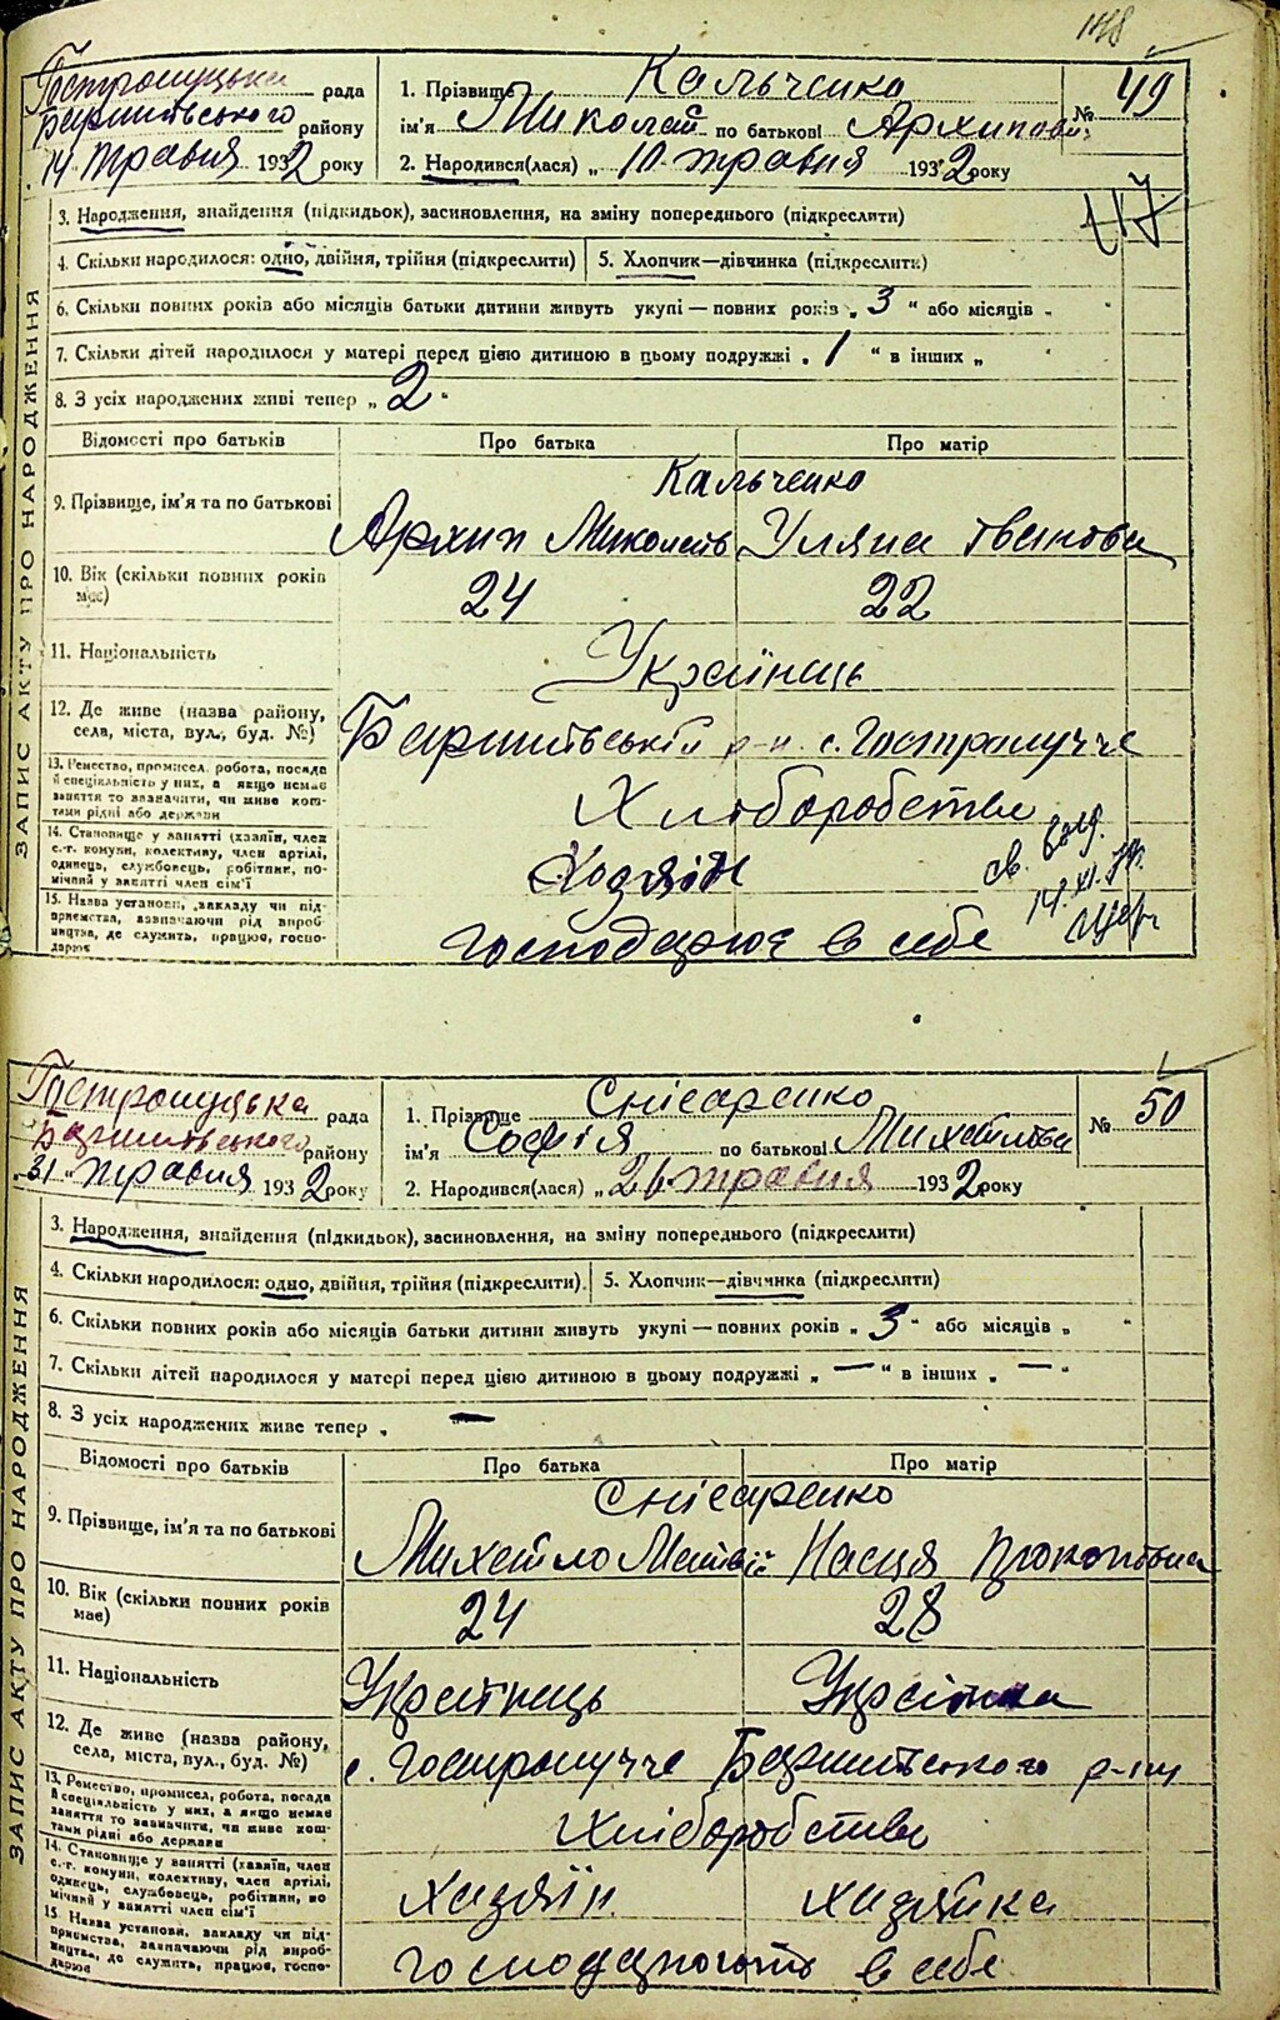 148
Гостролуцька рада
Баришівського району
14 травня 1932 року
1. Прізвище Кальченко
ім'я Миколай по батькові Архипов.
№ 49
2. Народився(лася) „ 10 травня 1932 року
117
ЗАПИС АКТУ ПРО НАРОДЖЕННЯ
3. Народження, знайдення (підкидьок), засиновлення, на зміну попереднього (підкреслити)
4. Скільки народилося: одно, двійня, трійня (підкреслити)
5. Хлопчик—дівчинка (підкреслити)
6. Скільки повних років або місяців батьки дитини живуть укупі — повних років „ 3 “ або місяців „
7. Скільки дітей народилося у матері перед цією дитиною в цьому подружжі „ 1 “ в інших „
8. З усіх народжених живі тепер „ 2 “
Відомості про батьків Про батька Про матір
Кальченко
9. Прізвище, ім'я та по батькові Архип Миколаєв Уляна Іванова
10. Вік (скільки повних років має) 24 22
11. Національність Українець
12. Де живе (назва району, села, міста, вул., буд. №) Баришівський р-н. с. Гостролуччє
13. Ремество, промисел, робота, посада й спеціяльність у них, а якщо немає заняття то зазначити, чи живе коштами рідні або держави Хліборобство
14. Становище у занятті (хазяїн, член с.-г. комуни, колективу, член артілі, одинець, службовець, робітник, помічний у занятті член сім'ї Хозяїн
15. Назва установи, закладу чи підприємства, зазначаючи рід виробництва, де служить, працює, господарює господарює в себе
св. выд.
14.XI.74.
Гостролуцька рада
Баришівського району
„31“ травня 1932 року
1. Прізвище Снісаренко
ім'я Софія по батькові Михайлівна
№ 50
2. Народився(лася) „ 26 травня 1932 року
ЗАПИС АКТУ ПРО НАРОДЖЕННЯ
3. Народження, знайдення (підкидьок), засиновлення, на зміну попереднього (підкреслити)
4. Скільки народилося: одно, двійня, трійня (підкреслити).
5. Хлопчик—дівчинка (підкреслити)
6. Скільки повних років або місяців батьки дитини живуть укупі — повних років „ 3 “ або місяців „ “
7. Скільки дітей народилося у матері перед цією дитиною в цьому подружжі „ — “ в інших „ — “
8. З усіх народжених живе тепер „ —
Відомості про батьків Про батька Про матір
Снісаренко
9. Прізвище, ім'я та по батькові Михайло Матвіїв Насця Прокопівна
10. Вік (скільки повних років має) 24 28
11. Національність Українець Українка
12. Де живе (назва району, села, міста, вул., буд. №) с. Гостролуччє Баришівського р-ну
13. Ремество, промисел, робота, посада й спеціяльність у них, а якщо немає заняття то зазначити, чи живе коштами рідні або держави Хліборобство
14. Становище у занятті (хазяїн, член с.-г. комуни, колективу, член артілі, одинець, службовець, робітник, помічний у занятті член сім'ї хазяїн. хазяйка
15. Назва установи, закладу чи підприємства, зазначаючи рід виробництва, де служить, працює, господарює господарюють в себе